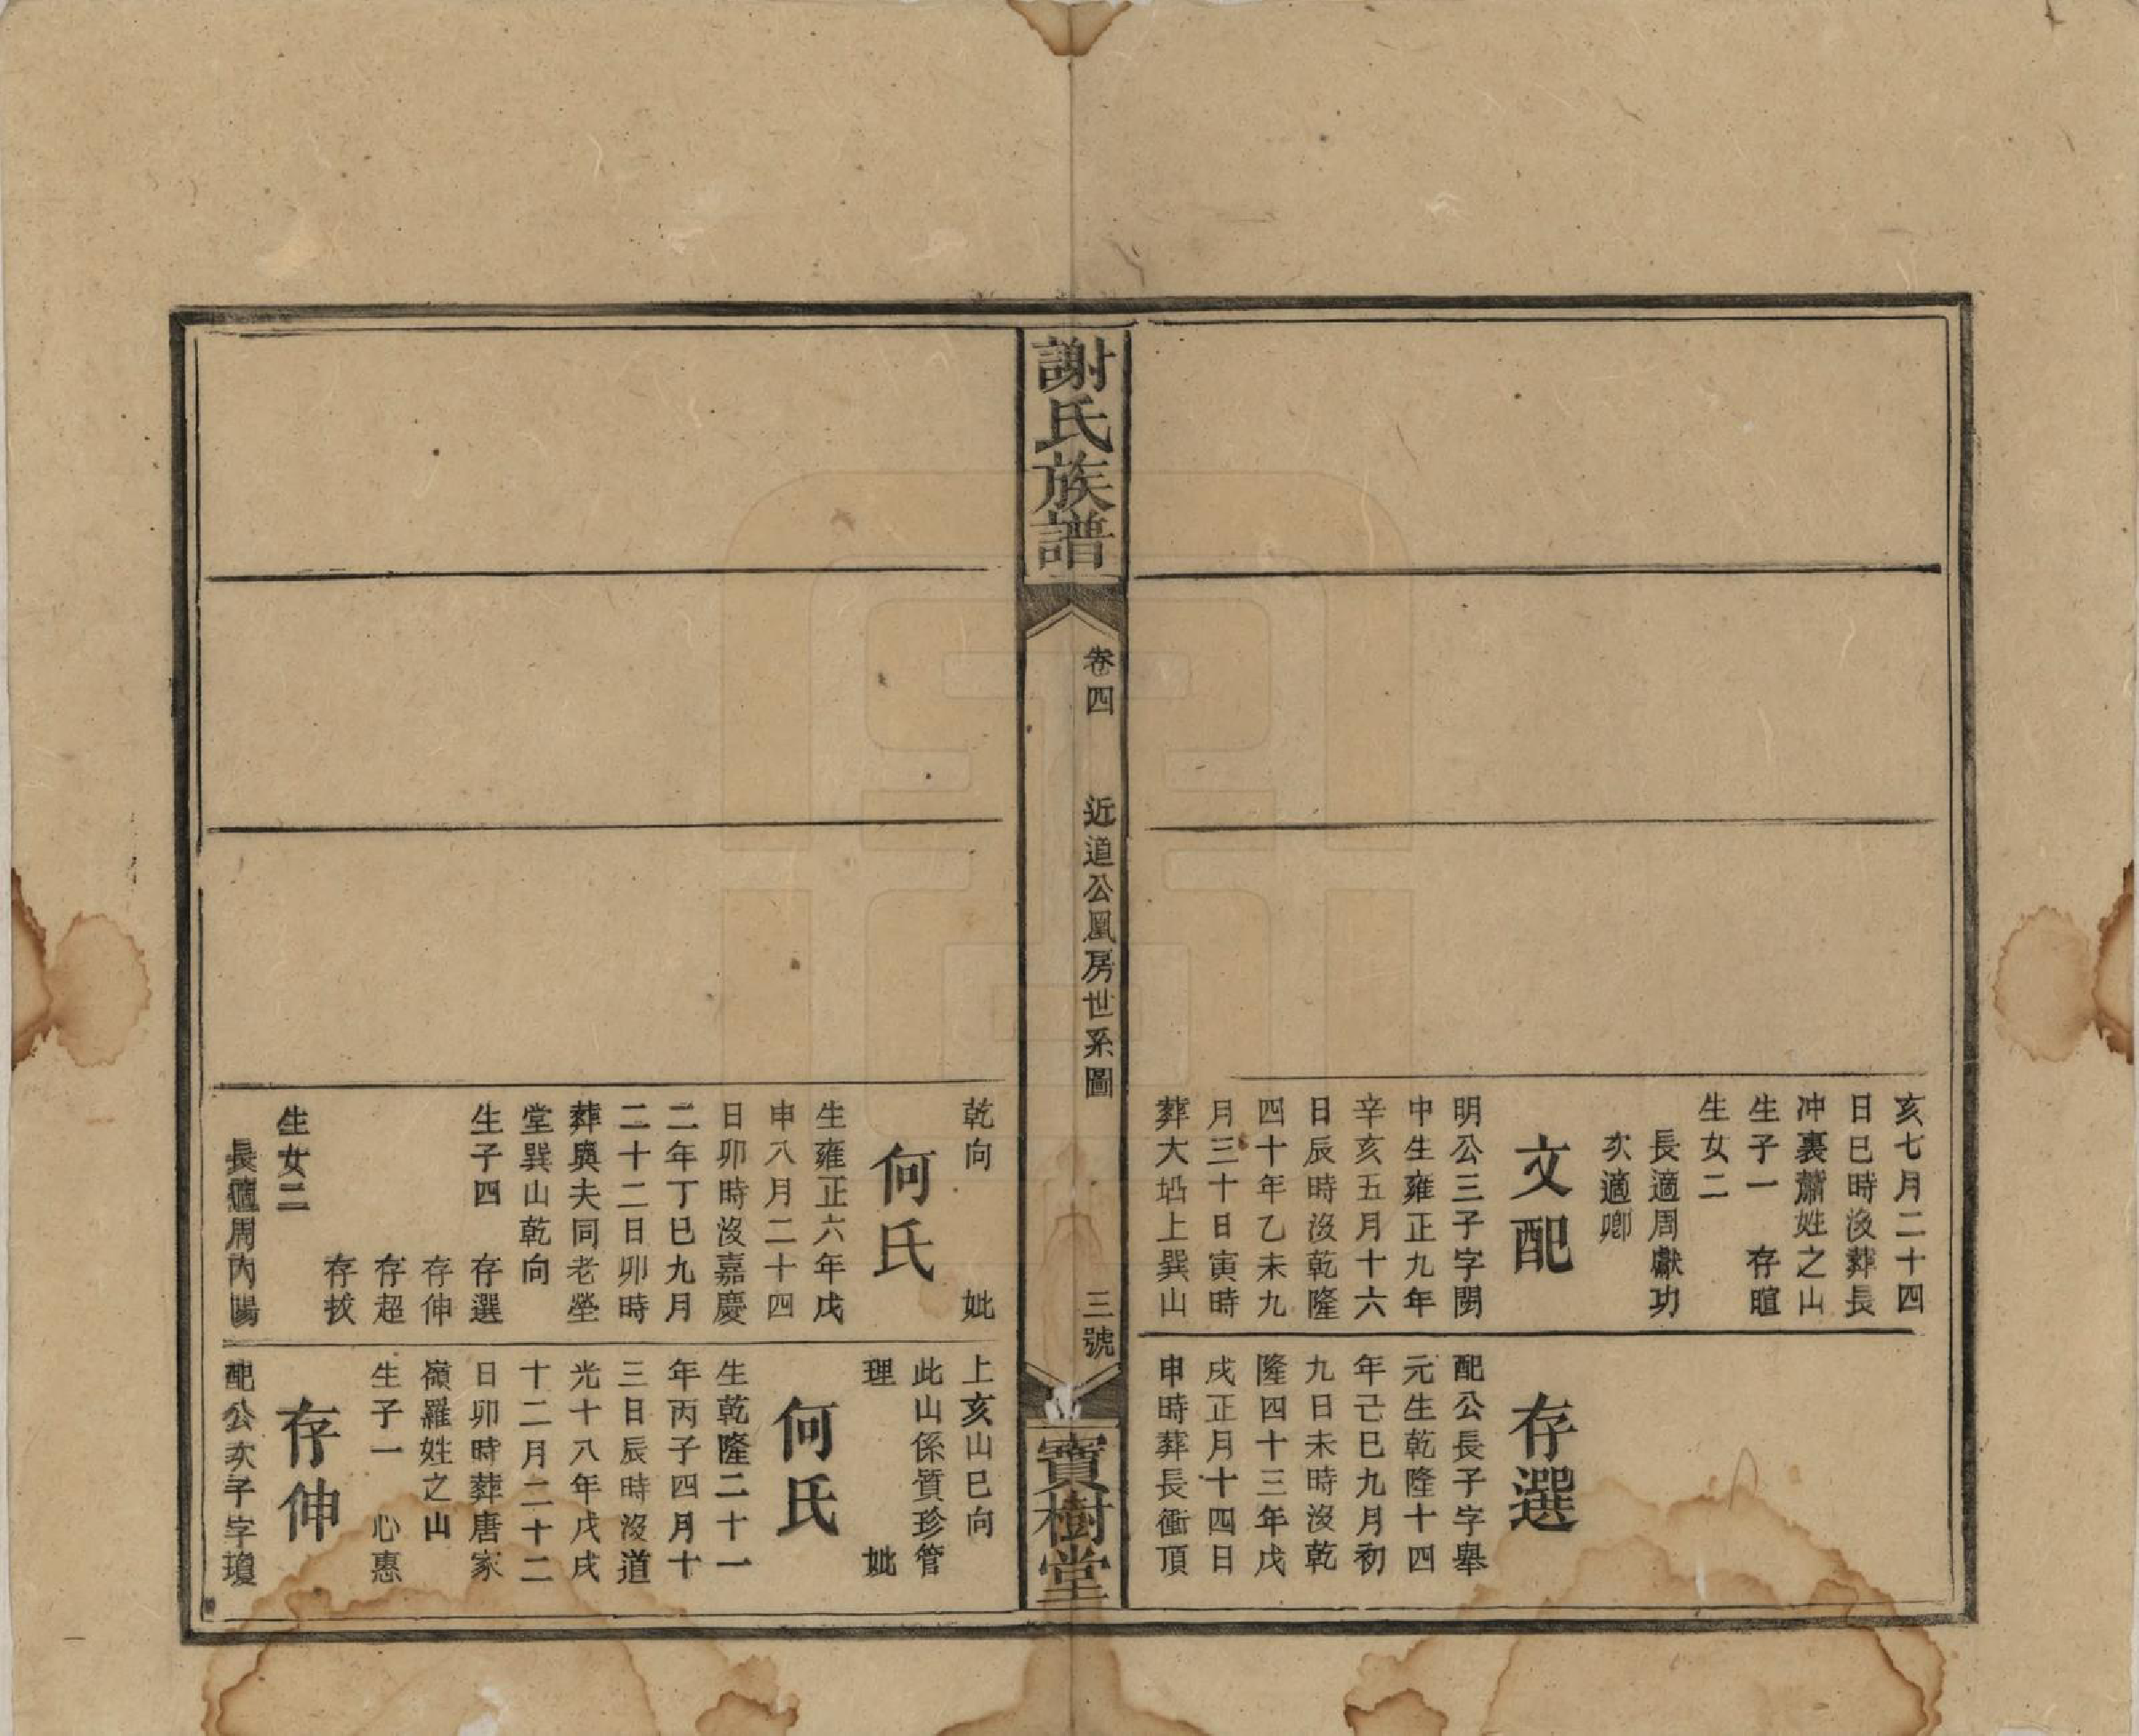 亥七月二十四
日巳時沒葬長
冲裏蕭姓之山
生子一 存暄
生女二
長適周獻功
次適卿
文配
明公三子字閉
中生雍正九年
辛亥五月十六
日辰時沒乾隆
四十年乙未九
月三十日寅時
葬大塪上巽山
存選
配公長子字舉
元生乾隆十四
年己巳九月初
九日未時沒乾
隆四十三年戊
戌正月十四日
申時葬長衝頂
謝氏族譜
卷四 近道公鳳房世系圖 三號
寶樹堂
乾向 妣
何氏
生雍正六年戊
申八月二十四
日卯時沒嘉慶
二年丁巳九月
二十二日卯時
葬與夫同老塋
堂巽山乾向
生子四 存選
存伸
存超
存拔
生女二
長適周內陽
上亥山巳向
此山係質珍管
理 妣
何氏
生乾隆二十一
年丙子四月十
三日辰時沒道
光十八年戊戌
十二月二十二
日卯時葬唐家
嶺羅姓之山
生子一 心惠
存伸
配公次子字瓊